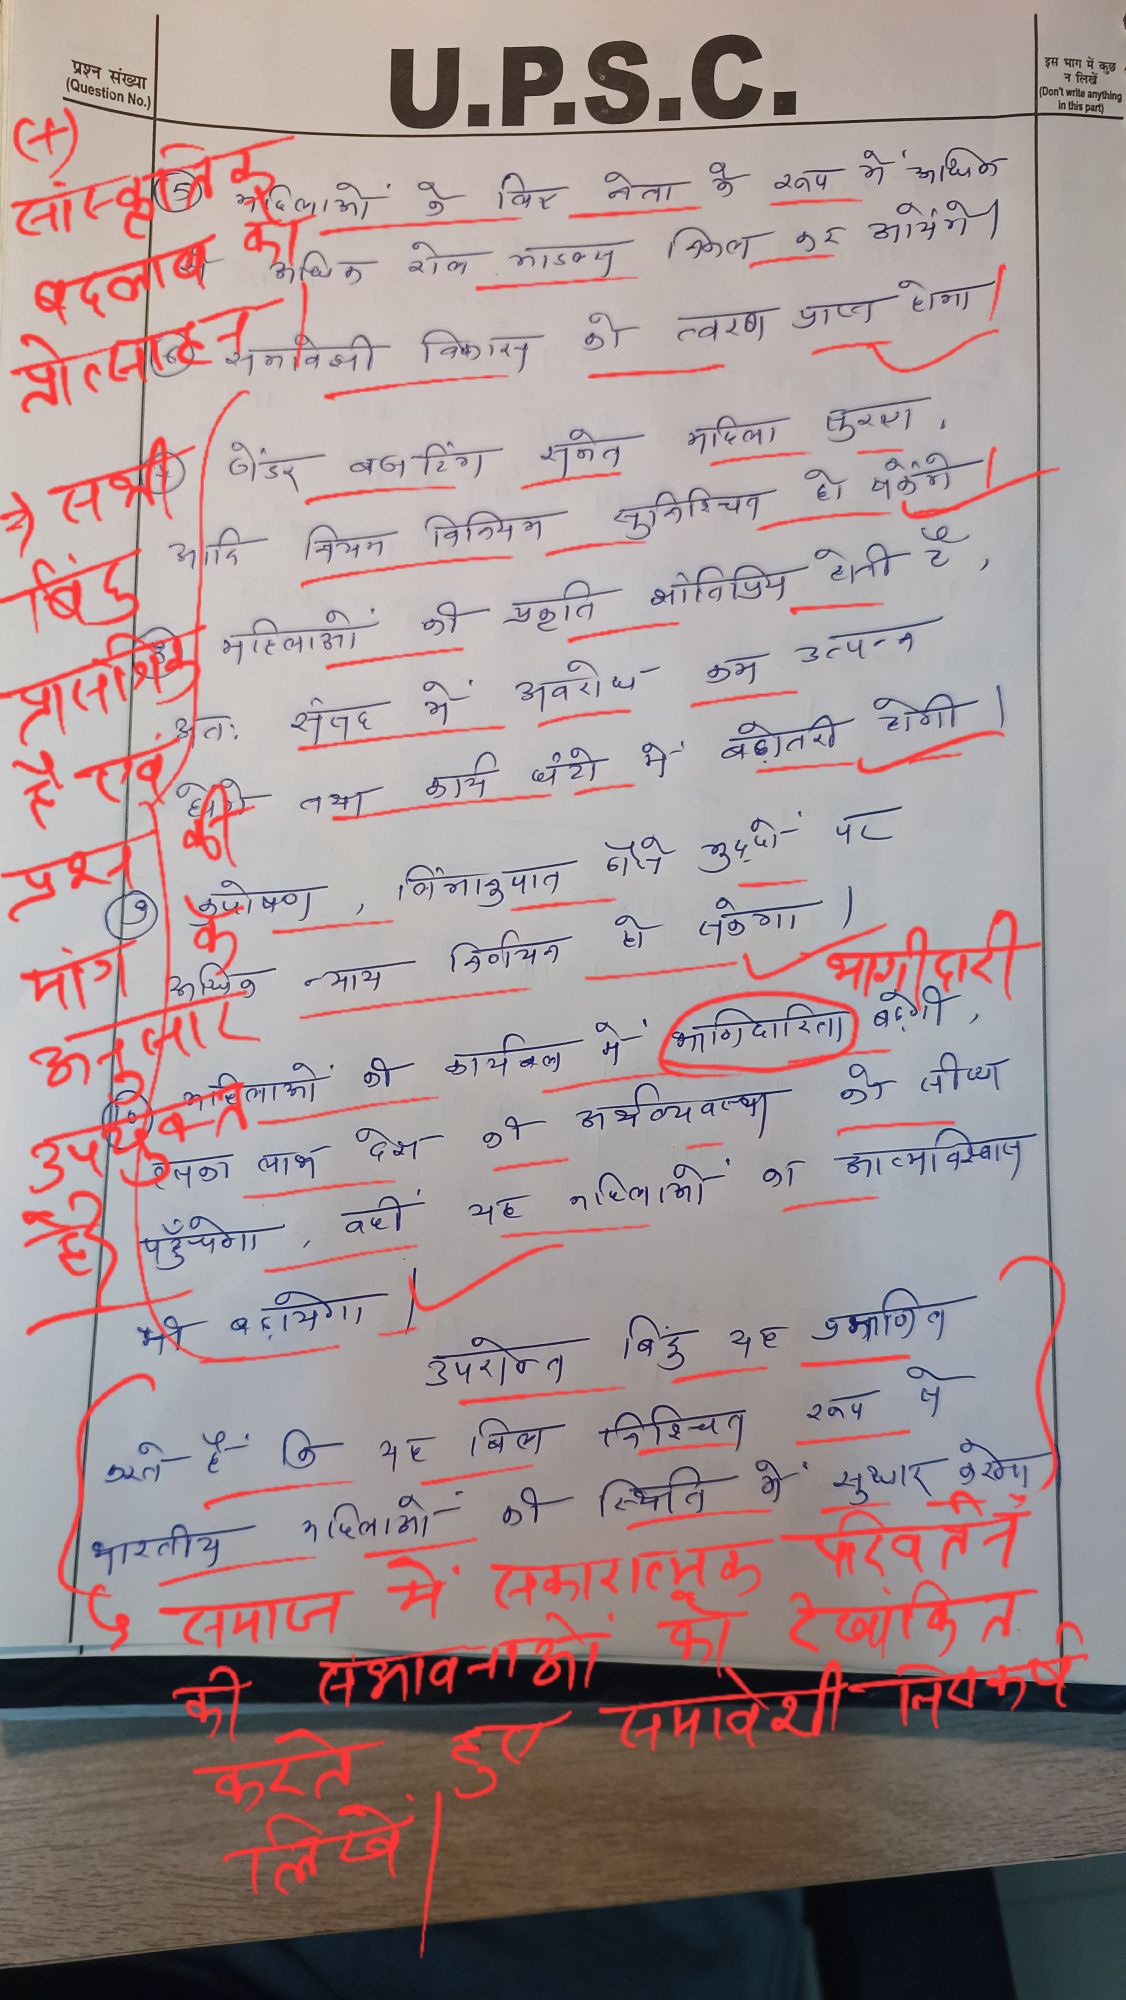 प्रश्न संख्या
(Question No.)
U.P.S.C.
इस भाग में कुछ
न लिखें
(Don't write anything
in this part)
(+)
सांस्कृतिक
बदलाव को
प्रोत्साहन।
5 महिलाओं के लिए नेता के रूप में अधिक
से अधिक रोल मॉडल्स निकल कर आयेंगे।
6 समावेशी विकास को त्वरण प्राप्त होगा।
7 जेंडर बजटिंग समेत महिला सुरक्षा,
आदि नियम विनियम सुनिश्चित हो सकेंगे।
8 महिलाओं की प्रकृति शांतिप्रिय होती है,
अतः संसद में अवरोध कम उत्पन्न
होंगे तथा कार्य घंटो में बढ़ोतरी होगी।
9 कुपोषण, लिंगानुपात जैसे मुद्दों पर
अधिक न्याय निर्णयन हो सकेगा।
10 महिलाओं की कार्यबल में भागिदारिता बढ़ेगी,
भागीदारी
इसका लाभ देश की अर्थव्यवस्था को सीधा
पहुँचेगा, वहीं यह महिलाओं का आत्मविश्वास
भी बढ़ायेगा।
→ सभी
बिंदु
प्रासंगिक
है एवं
प्रश्न की
मांग के
अनुसार
उपयुक्त
है।
उपरोक्त बिंदु यह प्रमाणित
करते हैं कि यह बिल निश्चित रूप से
भारतीय महिलाओं की स्थिति में सुधार करेगा
समाज में सकारात्मक परिवर्तन
की संभावनाओं को रेखांकित
करते हुए समावेशी निष्कर्ष
लिखें।